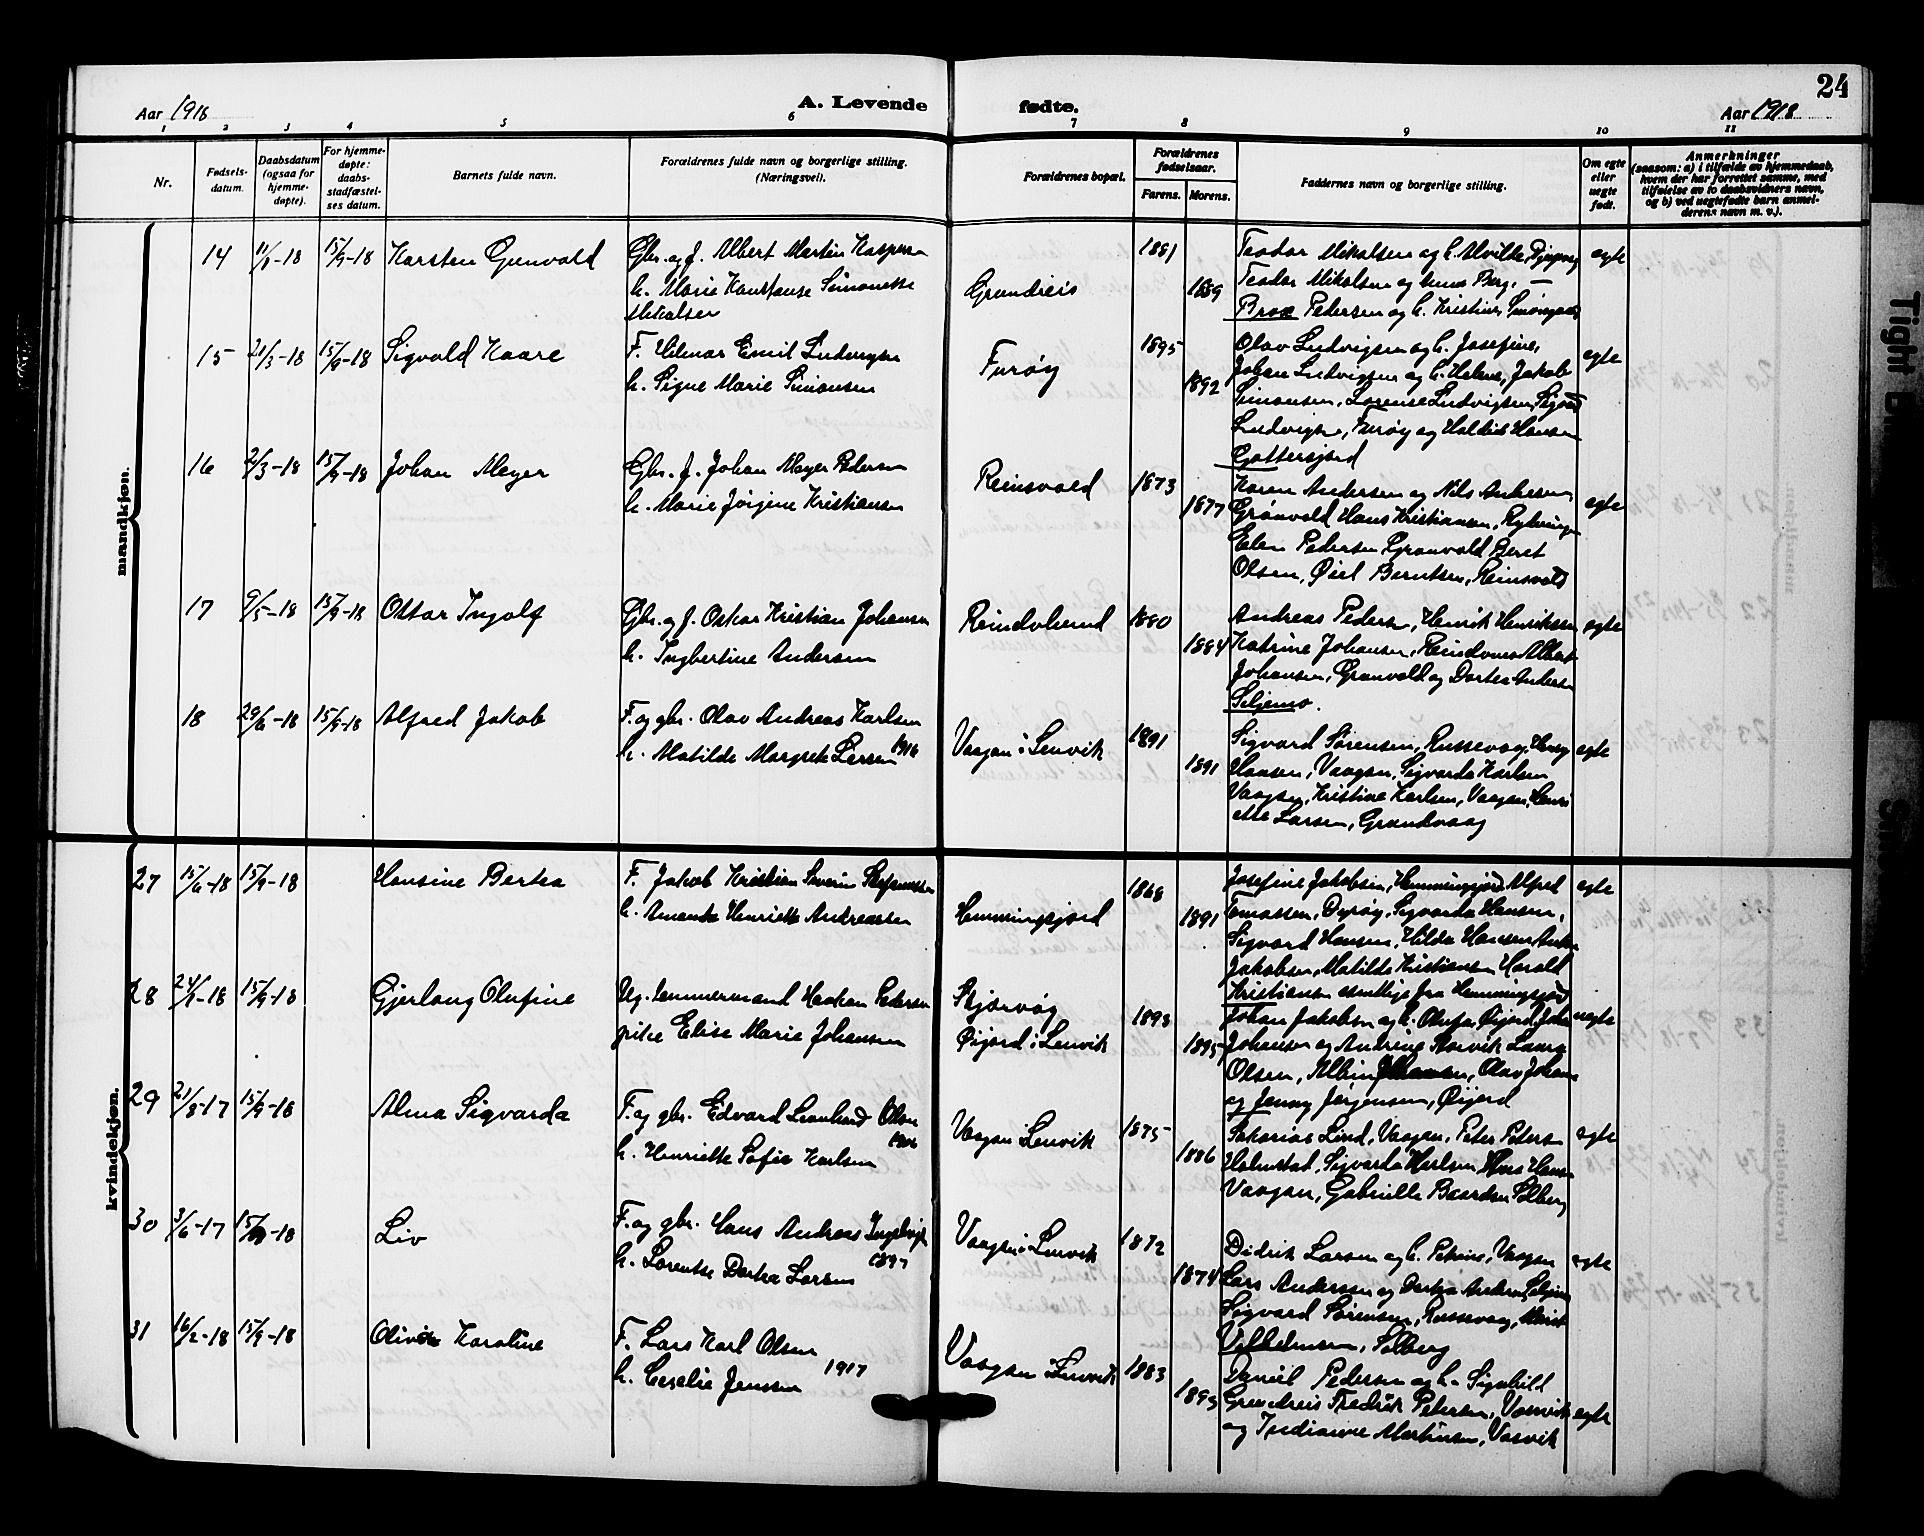 24
Aar 1918
A. Levende fødte.
Aar 1918
1 2 3 4 5 6 7 8 9 10 11
Nr.
Fødsels-
datum.
Daabsdatum
(ogsaa for
hjemme-
døpte).
For hjemme-
døpte:
daabs-
stadfæstel-
ses datum.
Barnets fulde navn.
Forældrenes fulde navn og borgerlige stilling.
(Næringsvei).
Forældrenes bopæl.
Forældrenes
fødselsaar.
Farens. Morens.
Faddernes navn og borgerlige stilling.
Om egte
eller
uegte
født.
Anmerkninger
(saasom: a) i tilfælde av hjemmedaab,
hvem der har forrettet samme, med
tilføielse av to daabsvidners navn,
og b) ved uegtefødte barn anmel-
derens navn m. v.).
mandkjøn.
14 15/9-18 Karsten Gunvald
Gbr. og f. Albert Martin Kaspersen
h. Marie Simonette
Mikalsen
Grundreis
1881
Teodor Mikalsen og h. Alvilde,
Teodor Mikalsen og
Pedersen og h. Kristine
egte
15 21/3-18 15/9-18 Sigvald Kaare
F. Hilmar Emil Ludvigsen
h. Signe Marie Simonsen
Furøy
1895
1892
Olav Ludvigsen og h. Josefine,
Johan Ludvigsen og h. Helene, Jakob
Simonsen, Lorense Ludvigsen, Sigvard
Ludvigsen, Furøy og Hansen
Gottersjord
egte
16 2/3-18 15/9-18 Johan Meyer
Gbr. f. Johan Meyer Pedersen
h. Marie Jørgine Kristiansen
Reinsvold
1873
1877
Karen Andersen og Nils Andersen,
Grønvold Hans Kristiansen,
Elen Pedersen Grønvold Beret
Olsen, Berntsen, Reinsvold
egte
17 9/5-18 15/9-18 Ottar Ingolf
Gbr. og f. Oskar Kristian Johansen
h. Ingbertine Andersen
1880
1884
Andreas Pedersen, Henrik Henriksen
Katrine Johansen, Albert
Johansen, Grønvold og Dortea Andersen
Seljemo.
egte
18 29/6-18 15/9-18 Alfred Jakob
F. og gbr. Olav Andreas Karlsen
h. Matilde Margrete Larsen 1916
Vaagan i Lenvik
1891
1891
Sigvard Sørensen, Russevaag,
Hansen, Vaagan, Sigvarda Karlsen
Vaagan, Kristine Karlsen, Vaagan, Henri
ette Larsen, Grundvaag
egte
kvindekjøn.
27 15/6-18 15/9-18 Hansine Bertea
F. Jakob Kristian Severin
h. Amanda Henriette Andreassen
Hemmingsjord
1868
1891
Josefine Jakobsen, Hemmingsjord Alfred
Tomassen, Dyrøy, Sigvarda Hansen,
Sigvard Hansen, Hilda Hansen
Jakobsen, Matilde Kristiansen Harald
Kristiansen samtlige fra Hemmingsjord
egte
28 15/9-18 Gjerlaug Olufine
Ug. tømmermand Haakon Pedersen
pike Elise Marie Johansen
Skjervøy
Øijord i Lenvik
1893
1895
Johan Jakobsen og h. Olufa, Øijord,
Johansen og Andrine Laura
Olsen, Albin Olav Johans
og Jenny Jørgensen, Øijord
uegte
29 21/8-17 15/9-18 Alma Sigvarda
F. og gbr. Edvard Leonhard Olsen
h. Henriette Sofie Karlsen
Vaagan i Lenvik
1875
1886
Sakarias Lind, Vaagan, Peter Peters
Sigvarda Karlsen
Vaagan, Gabrielle Baardsen Solberg
egte
30 3/6-17 15/9-18 Liv
F. og gbr. Hans Andreas
h. Lorentse Dortea Larsen 1897
Vaagan i Lenvik
1872
1874
Didrik Larsen og h. Petrine, Vaagan
Lars Andersen og Dortea Andersen
Sigvard Sørensen, Russevaag,
Vilhelmsen, Solberg
egte
31 16/2-18 15/9-18 Karoline
F. Lars Karl Olsen
h. Jensen 1917
Vaagan i Lenvik
1883
1895
Daniel Pedersen og h. Signhild
Grundreis Fredrik Petersen,
og Martinsen,
egte